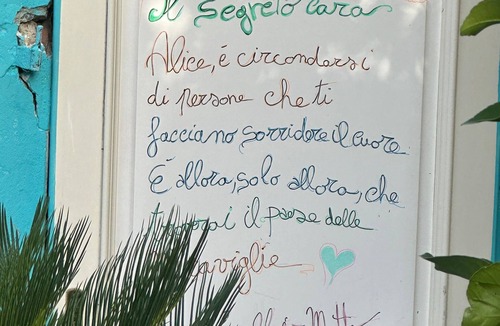 Il Segreto cara
Alice, è circondarsi
di persone che ti
facciano sorridere il cuore.
È allora, solo allora, che
troverai il paese delle
meraviglie